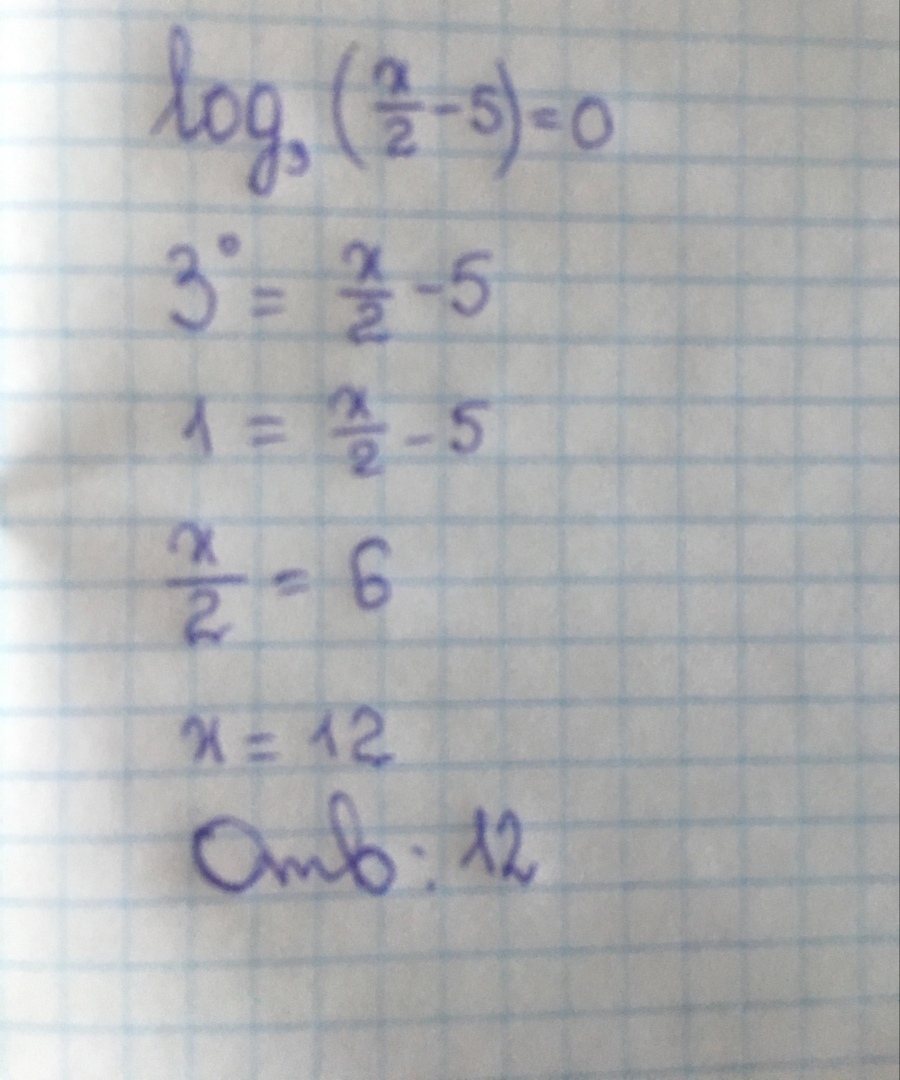 log₃ (x/2 - 5) = 0
3⁰ = x/2 - 5
1 = x/2 - 5
x/2 = 6
x = 12
Отв: 12